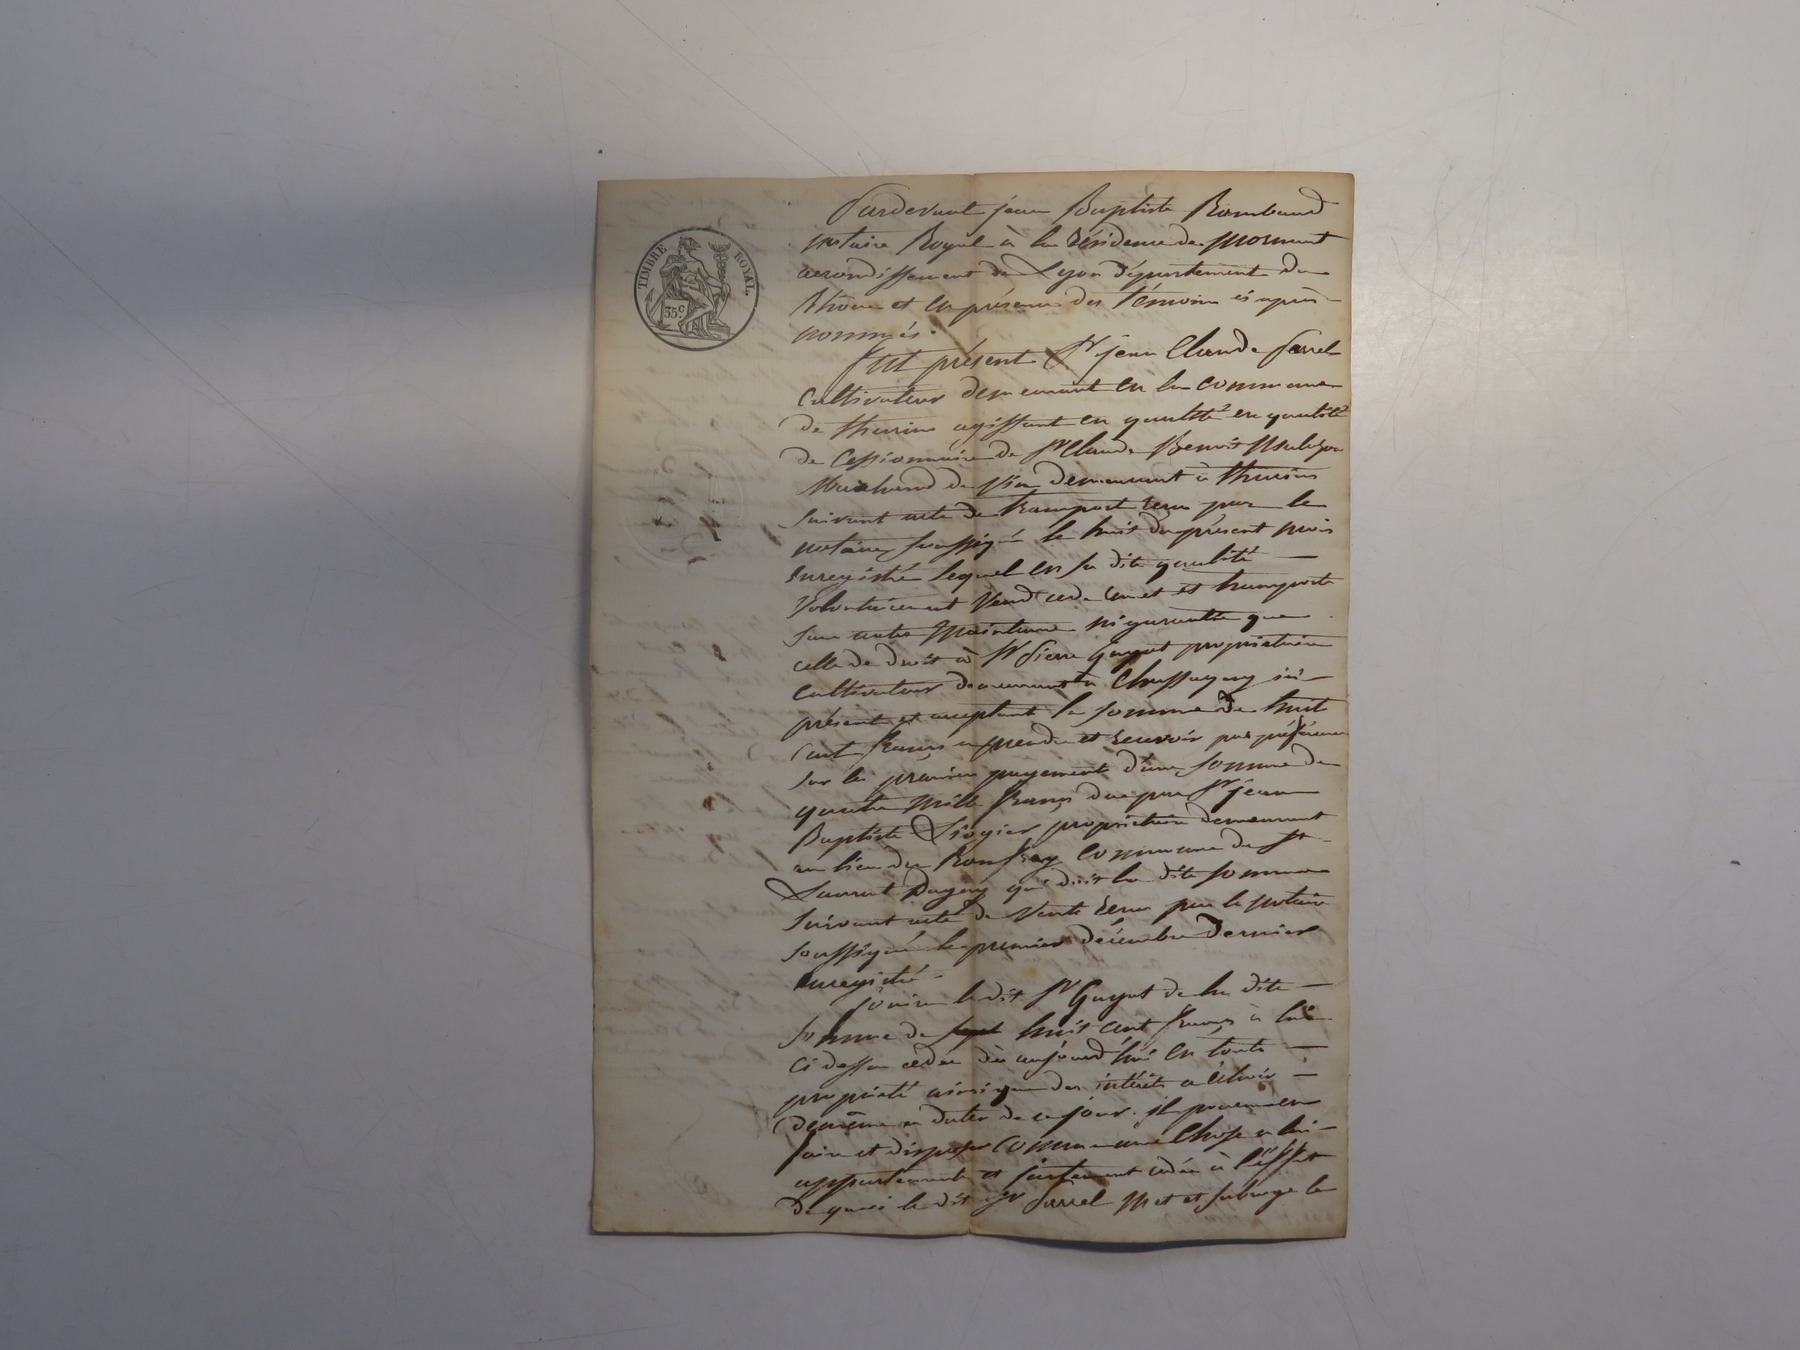 TIMBRE ROYAL.
35 c
Pardevant jean Baptiste Rambaud
notaire Royal à la résidence de mornant
arrondissement de Lyon département du
Rhône et en présence des témoins ci après
nommés.
fut présent Sr jean Claude farrel
Cultivateur demeurant en la commune
de thurins agissant en qualité en qualité
de Cessionnaire de Sr Claude Benoit
Marchand de vin demeurant à thurins
suivant acte de transport reçu par le
notaire soussigné le huit du présent mois
enregistré lequel en sa dite qualité
volontairement vend cede remet et transporte
sans autre maintenue ni garantie que
celle de droit à Sr pierre Guyot propriétaire
Cultivateur demeurant à Chassagny ici
présent et acceptant la somme de huit
cent francs a prendre et recevoir par préférence
sur les premiers payements d'une somme de
quatre mille francs due par Sr jean
Baptiste propriétaire demeurant
au lieu du commune de St
Laurent Dagny qui doit la dite somme
suivant acte de vente reçu par le notaire
soussigné le premier décembre dernier
enregistré.
jouira le dit Sr Guyot de la dite
somme de sept huit cent francs à lui
ci dessus cédée dès aujourd'hui en toute
propriété ainsi que des intérêts a échoir
dicelle a dater de ce jour. il pourra en
faire et disposer comme une chose a lui
appartenante et justement cédée à l'éffet
de quoi le dit Sr farrel met et subroge le